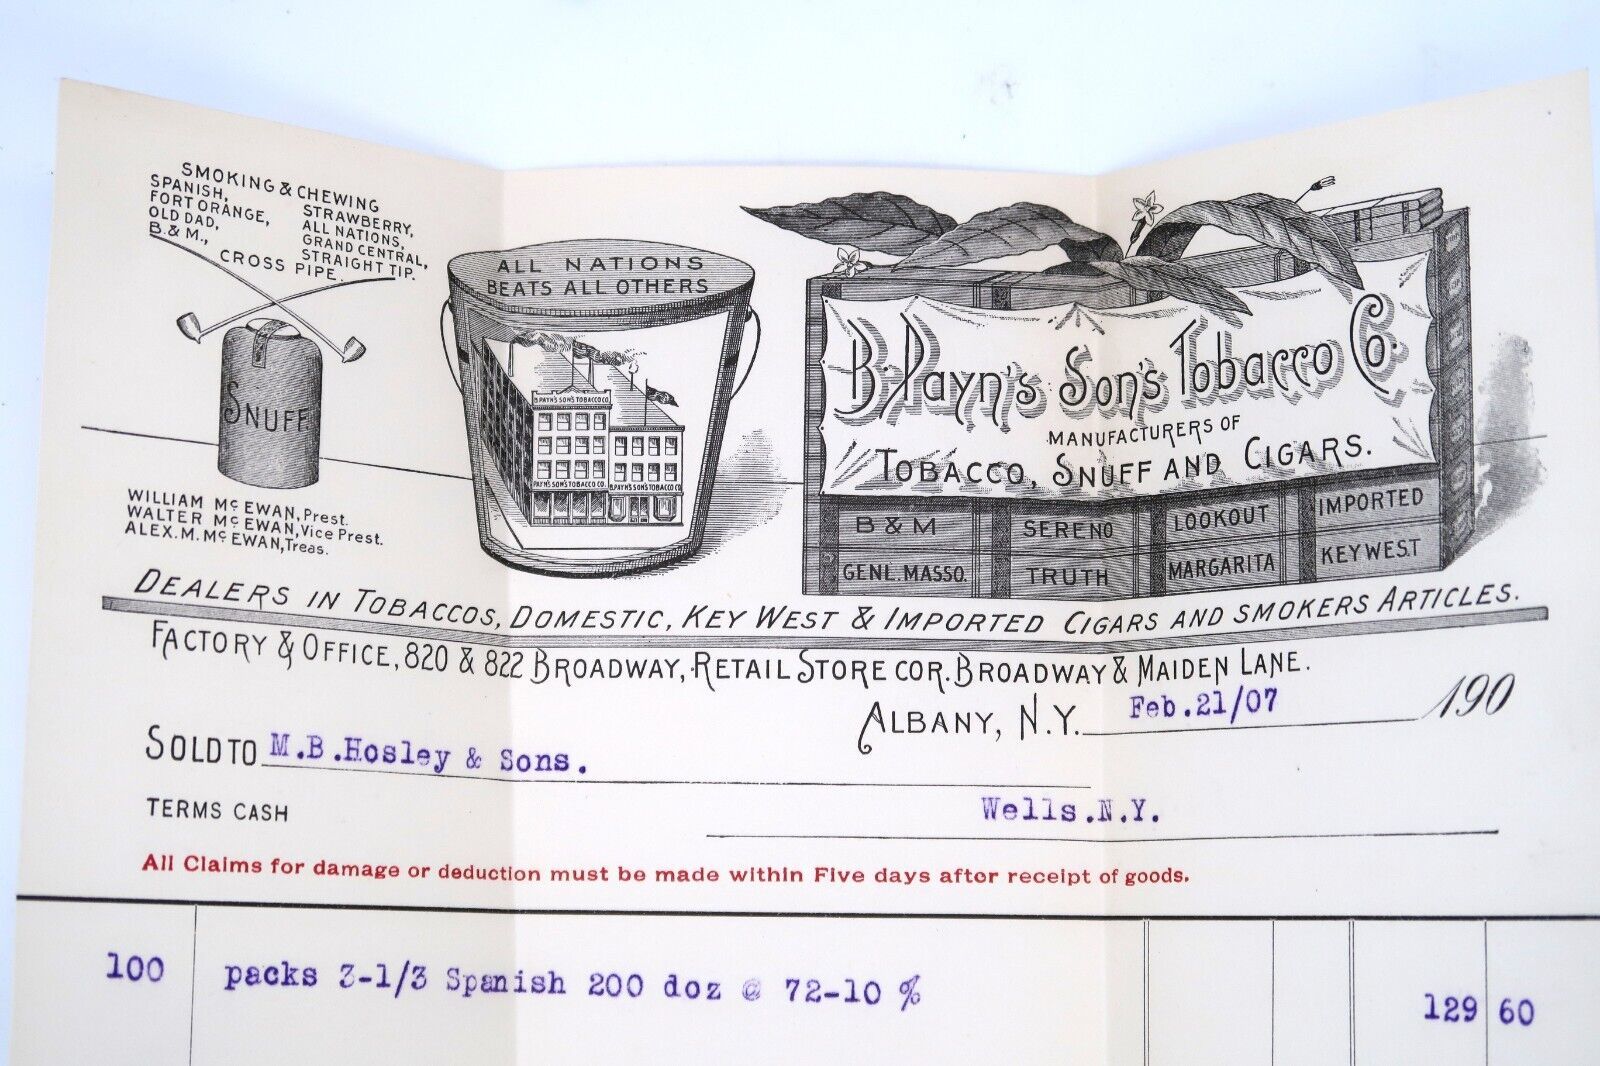 SMOKING & CHEWING
SPANISH,
FORT ORANGE,
OLD DAD,
B. & M.,
STRAWBERRY,
ALL NATIONS,
GRAND CENTRAL,
STRAIGHT TIP.
CROSS PIPE.
SNUFF
WILLIAM McEWAN, Prest.
WALTER McEWAN, Vice Prest.
ALEX. M. McEWAN, Treas.
ALL NATIONS
BEATS ALL OTHERS
B. PAYN'S SON'S TOBACCO CO.
PAYN'S SON'S TOBACCO CO.
B. PAYN'S SON'S TOBACCO CO.
B. Payn's Son's Tobacco Co.
MANUFACTURERS OF
TOBACCO, SNUFF AND CIGARS.
B & M SERENO LOOKOUT IMPORTED
GENL. MASSO. TRUTH MARGARITA KEY WEST
DEALERS IN TOBACCOS, DOMESTIC, KEY WEST & IMPORTED CIGARS AND SMOKERS ARTICLES.
FACTORY & OFFICE, 820 & 822 BROADWAY, RETAIL STORE COR. BROADWAY & MAIDEN LANE.
ALBANY, N.Y. Feb.21/07 190
SOLD TO M.B.Hosley & Sons.
TERMS CASH
Wells.N.Y.
All Claims for damage or deduction must be made within Five days after receipt of goods.
100 packs 3-1/3 Spanish 200 doz @ 72-10 % 129 60